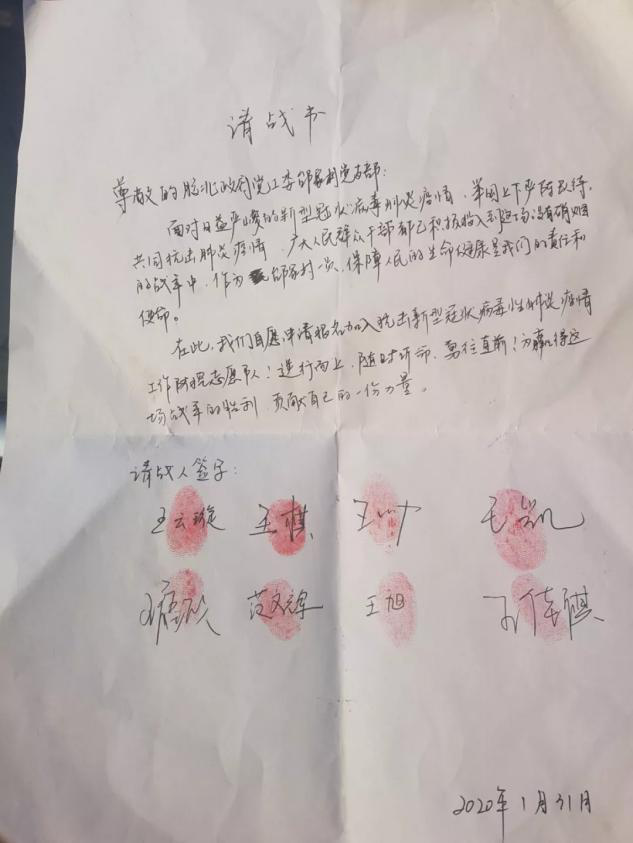 请战书
尊敬的胶北政府党工委邱家村党支部:
面对日益严峻的新型冠状病毒肺炎疫情,举国上下严阵以待,
共同抗击肺炎疫情,广大人民群众干部都已积极投入到这场没有硝烟
的战争中,作为邱家村一员,保障人民的生命健康是我们的责任和
使命。
在此,我们自愿申请报名加入抗击新型冠状病毒性肺炎疫情
工作防控志愿队!逆行而上,随时听命,勇往直前!为赢得这
场战争的胜利,贡献自己的一份力量。
请战人签字:
王云璇 王棋
范文辉 王旭 孙佳祺
2020年1月31日